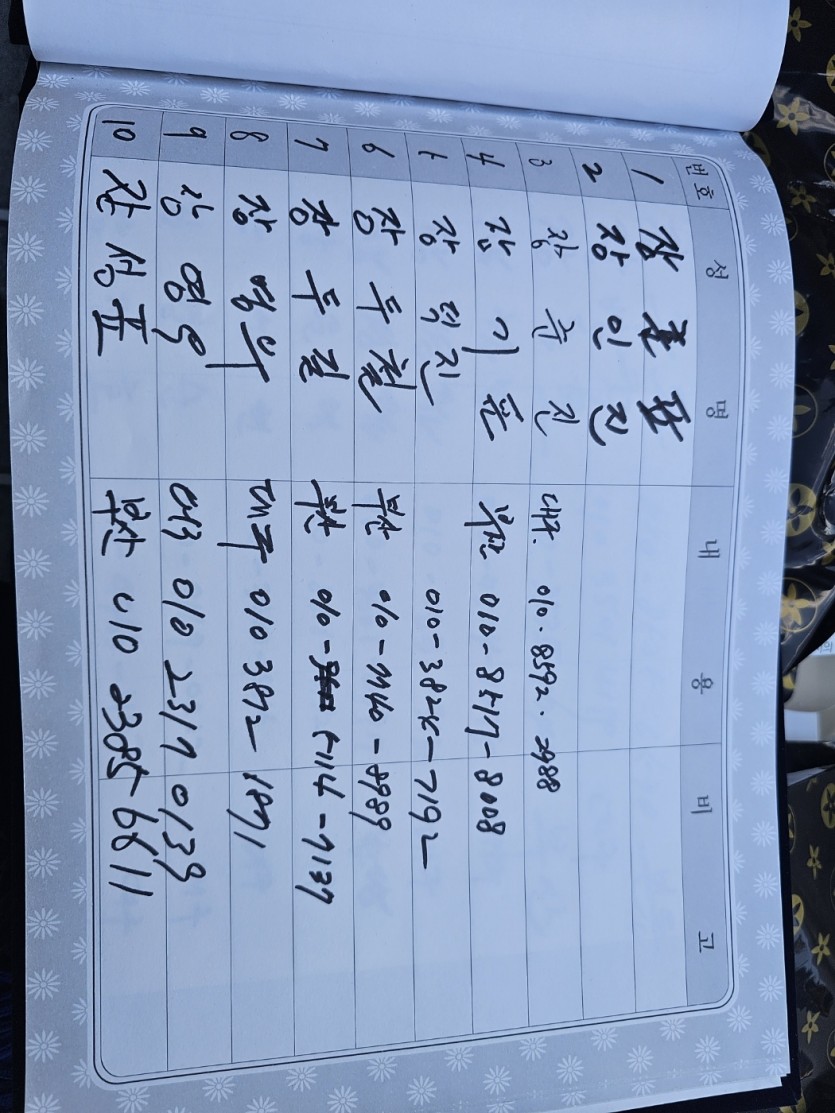 번호 성 명 내 용 비 고
1 장 준 표
2 장 인 진
3 장 주 진 대구. 010. 8592. 2988
4 장 기 문 010-8517-8008
5 장 덕진 010-3825-7192
6 장 두 천 부산 010- -8989
7 장 두 진 부산 010- 5114-7137
8 장 영 우 대구 010 3872-1871
9 장 영 우 010 2319 0139
10 장 성 표 부산 010 2385-6611